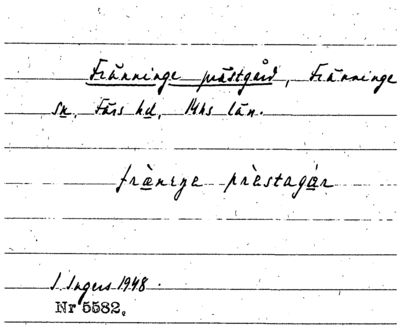 Fränninge prästgård, Fränninge
sn. Färs hd, Mhs län.
fræ̀nɩŋe præ̀stagɑr
I Ingers 1948.
Nr 5582.